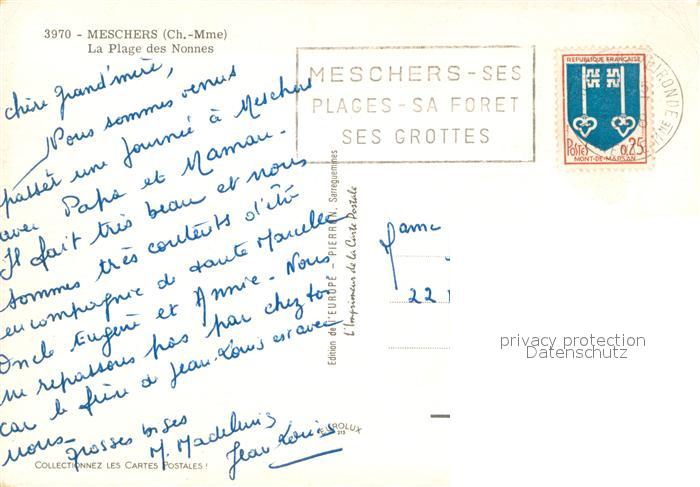 3970 - MESCHERS (Ch.-Mme)
La Plage des Nonnes
chère grand'mère,
Nous sommes venus
passer une journée à Meschers
avec Papa et Maman.
Il fait très beau et nous
sommes très contents d'être
en compagnie de tante Marcelle
Oncle Eugène et Annie. Nous
ne repassons pas par chez toi
car le frère de Jean-Louis est avec
nous.
grosses bises
M. Madeleine
Jean Louis
COLLECTIONNEZ LES CARTES POSTALES !
MESCHERS - SES
PLAGES - SA FORET
SES GROTTES
REPUBLIQUE FRANÇAISE
Postes 0,25
MONT-DE-MARSAN
GIRONDE
Edition de l'EUROPE - PIERRON, Sarreguemines
L'Imprimeur de la Carte Postale
EUROLUX
213
22
privacy protection
Datenschutz